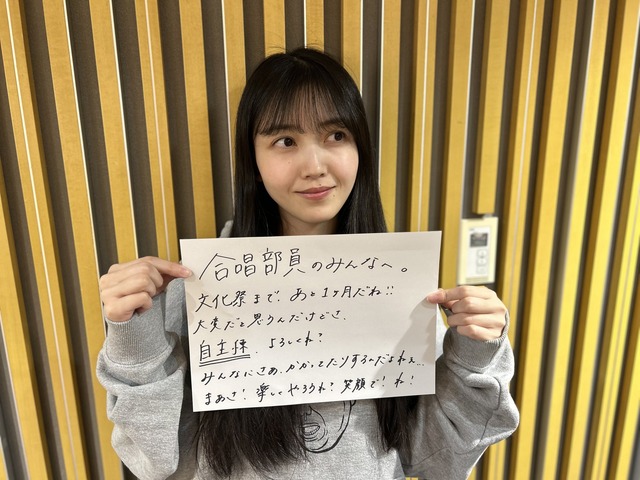 合唱部員のみんなへ。
文化祭まで、あと1ヶ月だね!!
大変だと思うんだけどさ、
自主練、よろしくね?
みんなにさあ、かかってたりするんだよねぇ…
まあさ!楽しくやろうね?笑顔で!ね!